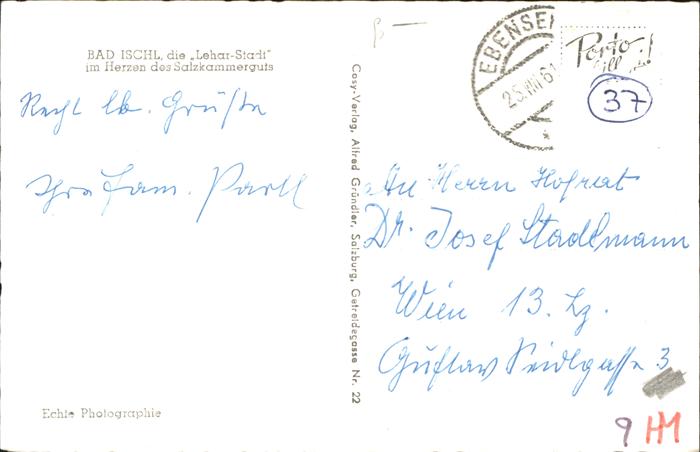 BAD ISCHL, die „Lehar-Stadt"
im Herzen des Salzkammerguts
Recht lb. Grüße
Ihre Fam. Partl
Echte Photographie
Cosy-Verlag, Alfred Gründler, Salzburg, Getreidegasse Nr. 22
EBENSEE
25.VIII.61
Porto
37
An Herrn Hofrat
Dr. Josef Stadlmann
Wien 13. Lz.
Gustav Seidlgasse 3
9 HM